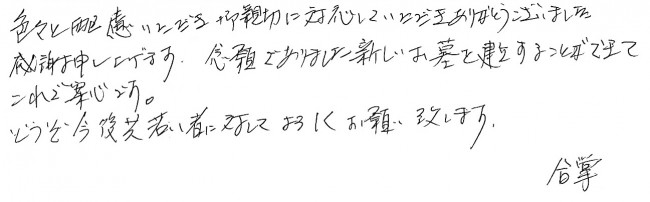 色々と配慮いただき御親切に対応していただきありがとうございました
感謝申し上げます。念願でありました新しいお墓を建立することができて
これで安心です。
どうぞ今後共若い者に対してよろしくお願い致します。
合掌